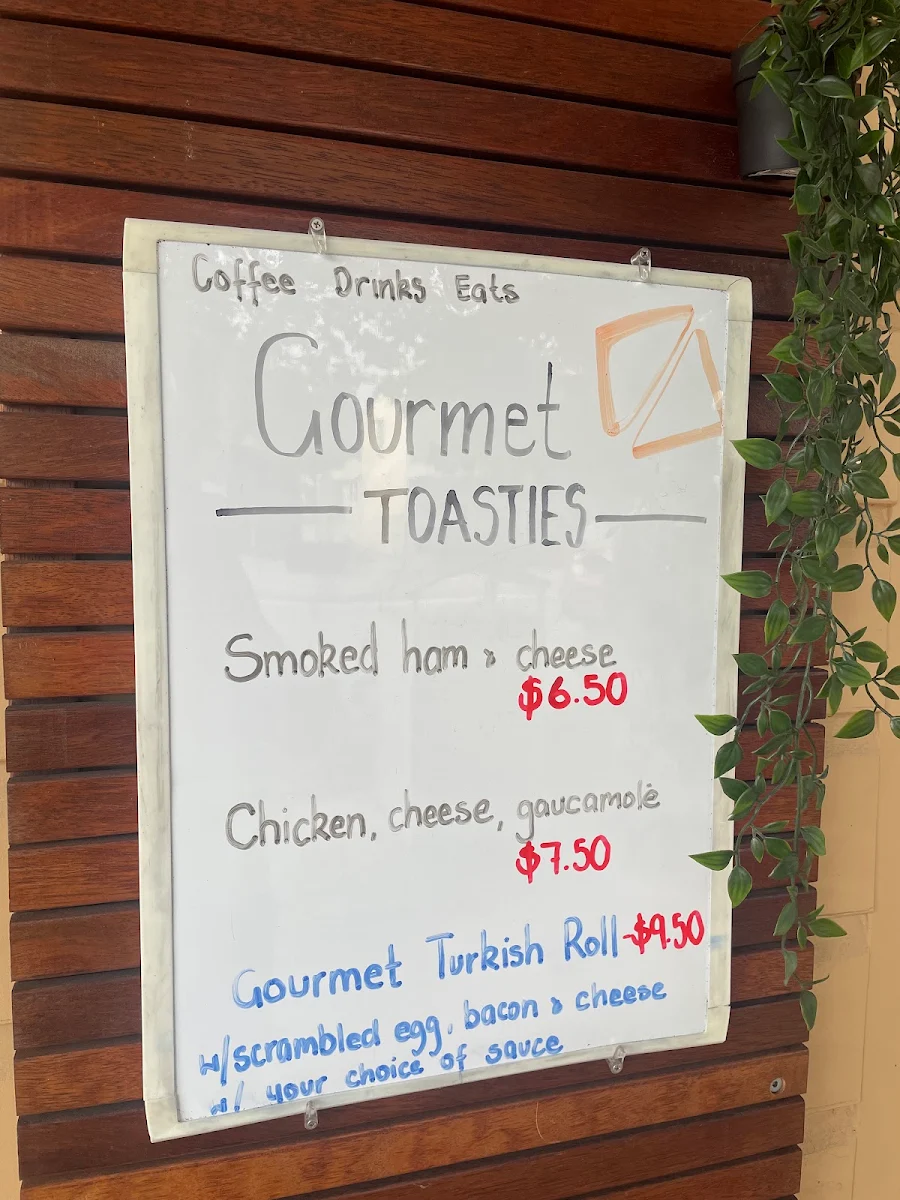 Coffee Drinks Eats
Gourmet
TOASTIES
Smoked ham & cheese
$6.50
Chicken, cheese, gaucamole
$7.50
Gourmet Turkish Roll -$9.50
w/scrambled egg, bacon & cheese
w/ your choice of sauce